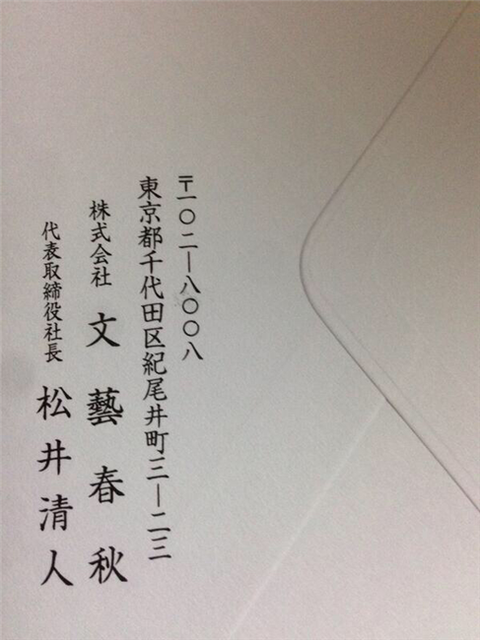 〒一〇二―八〇〇八
東京都千代田区紀尾井町三―二三
株式会社 文藝春秋
代表取締役社長 松井清人